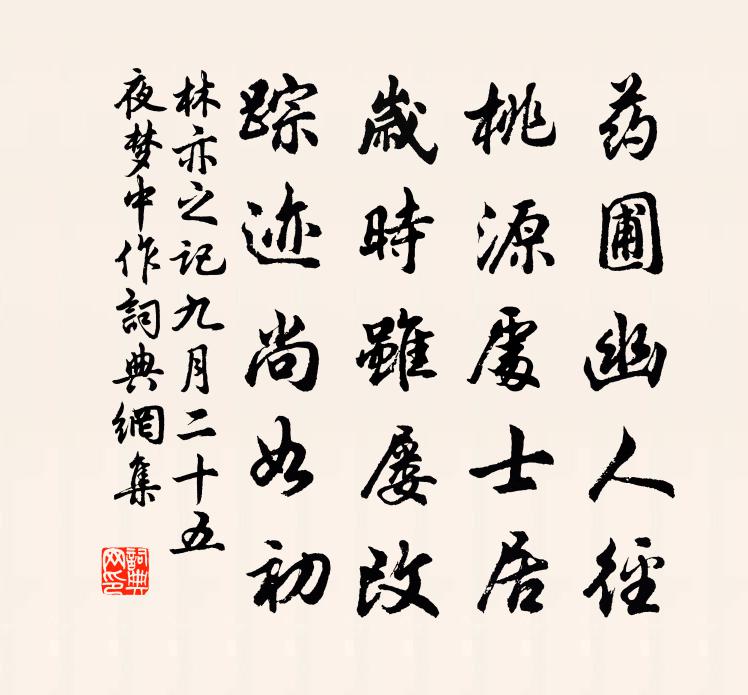 药圃幽人径
桃源處士居
歲時雖屡改
踪迹尚如初
林亦之记九月二十五
夜梦中作詞典網集
詞典网印